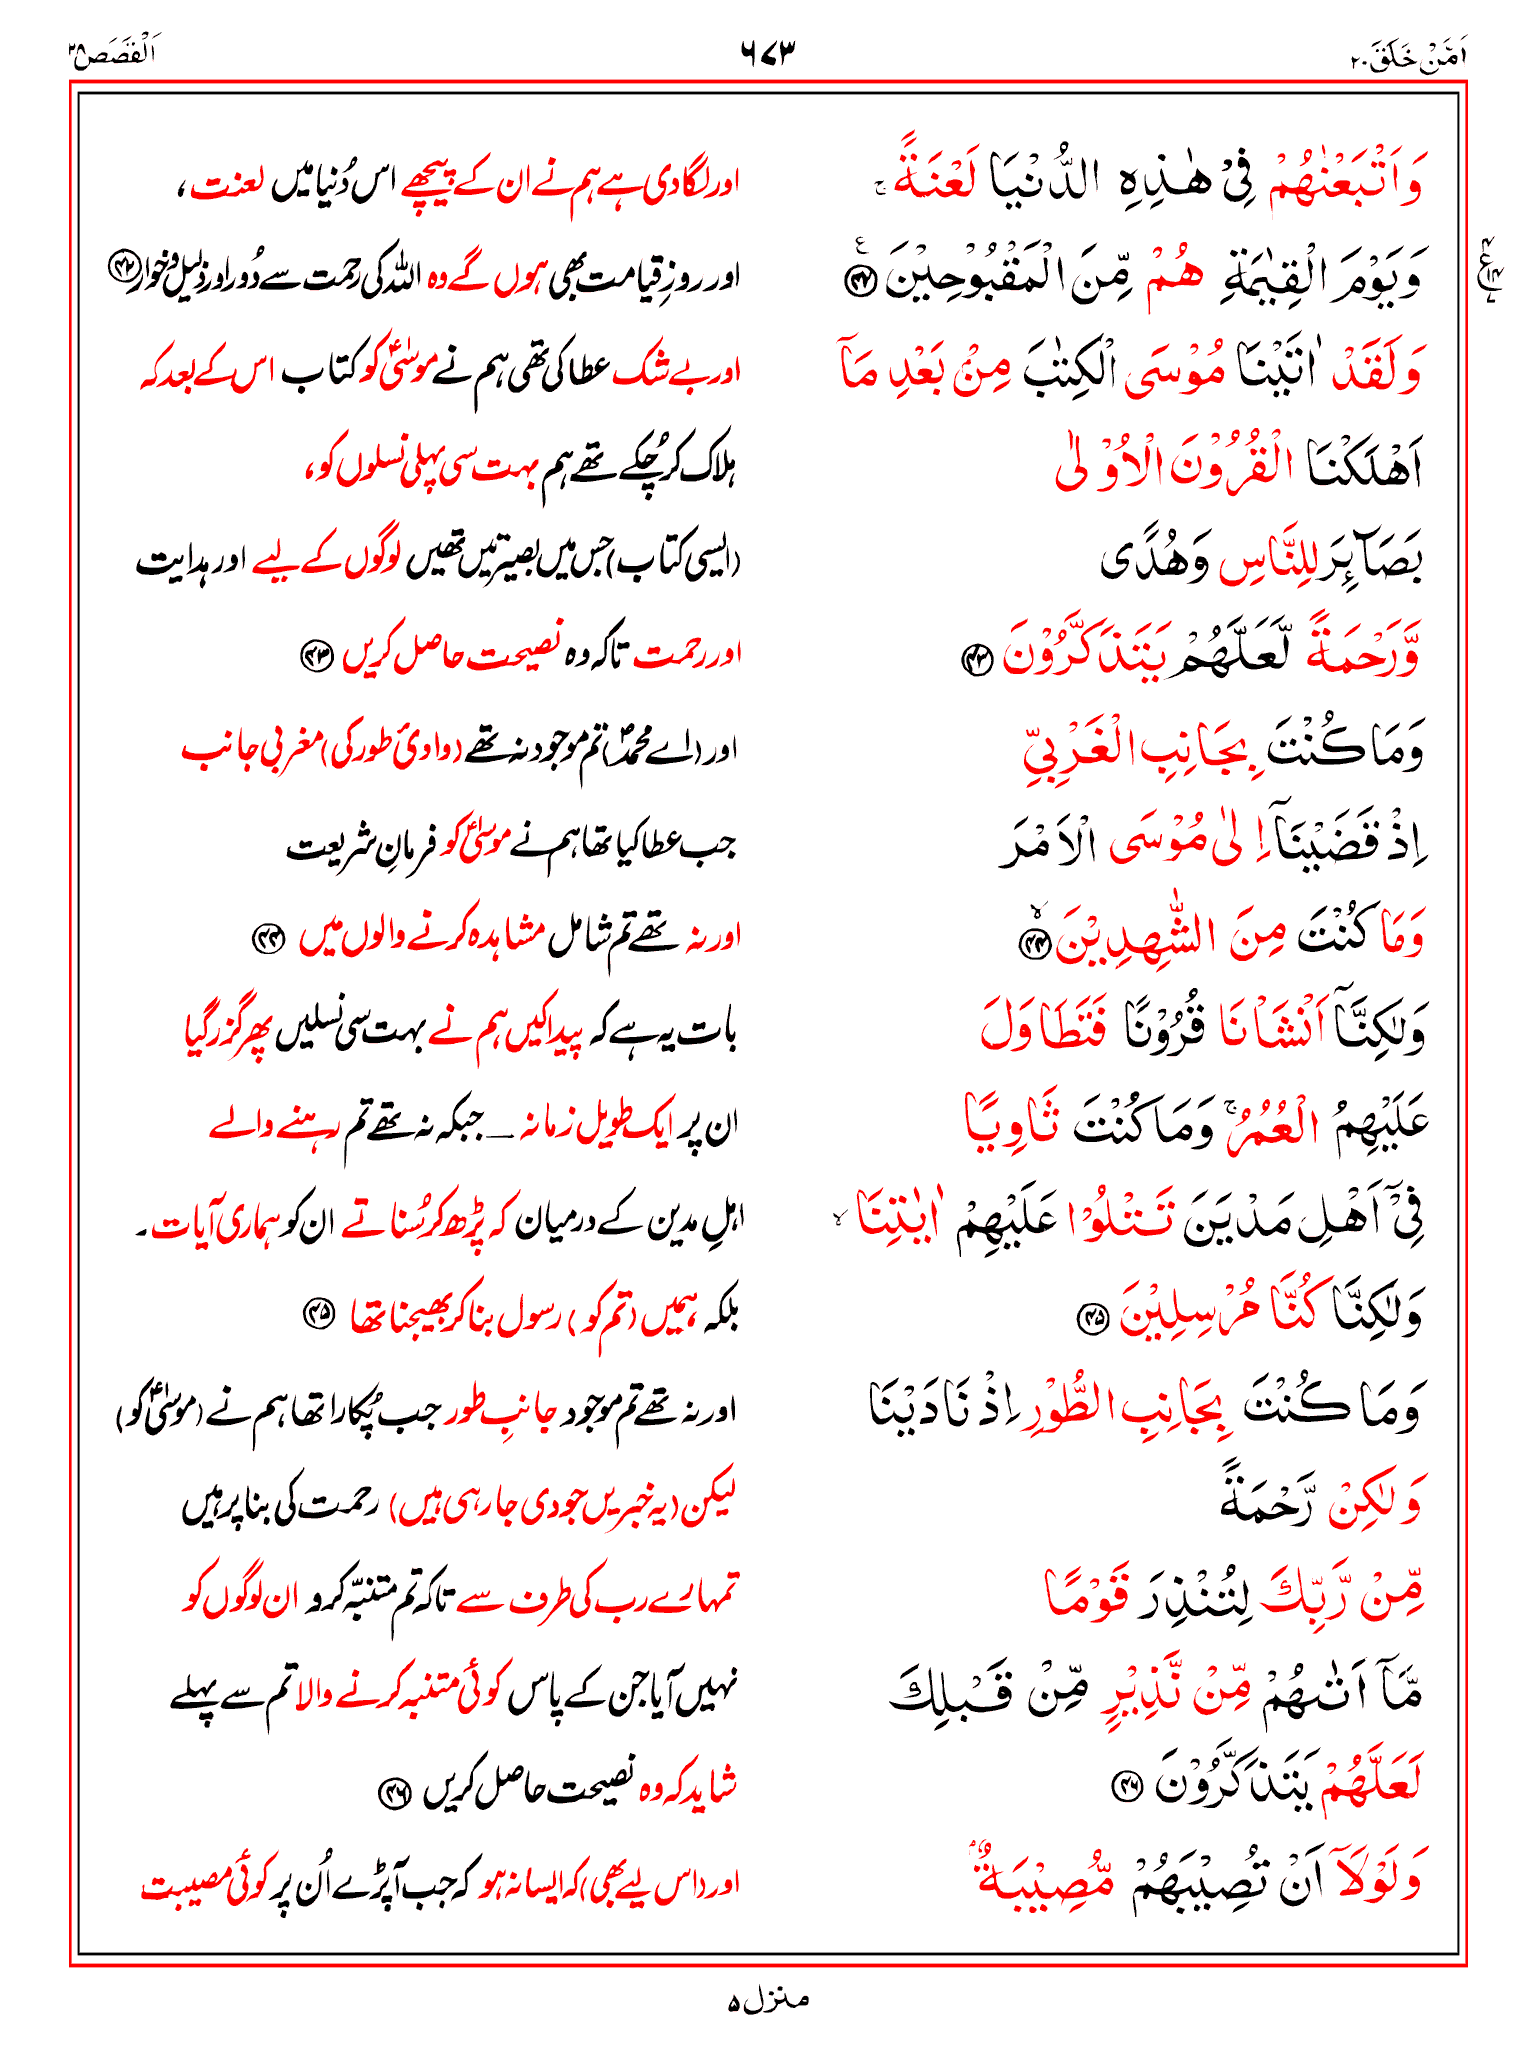 اَمَّنْ خَلَقَ ۲۰ ۶۷۳ اَلْقَصَص ۲۸
وَاَتْبَعْنٰهُمْ فِیْ هٰذِهِ الدُّنْیَا لَعْنَةً ۚ اور لگادی ہے ہم نے ان کے پیچھے اس دُنیا میں لعنت،
وَیَوْمَ الْقِیٰمَةِ هُمْ مِّنَ الْمَقْبُوْحِیْنَ ﴿۴۲﴾ اور روزِ قیامت بھی ہوں گے وہ اللہ کی رحمت سے دُور اور ذلیل و خوار ﴿۴۲﴾
وَلَقَدْ اٰتَیْنَا مُوْسَی الْکِتٰبَ مِنْۢ بَعْدِ مَاۤ اور بے شک عطا کی تھی ہم نے موسٰیؑ کو کتاب اس کے بعد کہ
اَهْلَکْنَا الْقُرُوْنَ الْاُوْلٰی ہلاک کر چُکے تھے ہم بہت سی پہلی نسلوں کو،
بَصَآئِرَ لِلنَّاسِ وَهُدًی (ایسی کتاب) جس میں بصیرتیں تھیں لوگوں کے لیے اور ہدایت
وَّرَحْمَةً لَّعَلَّهُمْ یَتَذَکَّرُوْنَ ﴿۴۳﴾ اور رحمت تاکہ وہ نصیحت حاصل کریں ﴿۴۳﴾
وَمَا کُنْتَ بِجَانِبِ الْغَرْبِیِّ اور (اے محمدؐ) تم موجود نہ تھے (وادیٔ طور کی) مغربی جانب
اِذْ قَضَیْنَاۤ اِلٰی مُوْسَی الْاَمْرَ جب عطا کیا تھا ہم نے موسٰیؑ کو فرمانِ شریعت
وَمَا کُنْتَ مِنَ الشّٰهِدِیْنَ ﴿۴۴﴾ۙ اور نہ تھے تم شامل مشاہدہ کرنے والوں میں ﴿۴۴﴾
وَلٰکِنَّاۤ اَنْشَاْنَا قُرُوْنًا فَتَطَاوَلَ بات یہ ہے کہ پیدا کیں ہم نے بہت سی نسلیں پھر گزر گیا
عَلَیْهِمُ الْعُمُرُ ۚ وَمَا کُنْتَ ثَاوِیًا ان پر ایک طویل زمانہ ـ جبکہ نہ تھے تم رہنے والے
فِیْۤ اَهْلِ مَدْیَنَ تَتْلُوْا عَلَیْهِمْ اٰیٰتِنَا ۙ اہلِ مدین کے درمیان کہ پڑھ کر سُناتے ان کو ہماری آیات۔
وَلٰکِنَّا کُنَّا مُرْسِلِیْنَ ﴿۴۵﴾ بلکہ ہمیں (تم کو) رسول بنا کر بھیجنا تھا ﴿۴۵﴾
وَمَا کُنْتَ بِجَانِبِ الطُّوْرِ اِذْ نَادَیْنَا اور نہ تھے تم موجود جانبِ طور جب پُکارا تھا ہم نے (موسٰیؑ کو)
وَلٰکِنْ رَّحْمَةً لیکن (یہ خبریں جو دی جارہی ہیں) رحمت کی بنا پر ہیں
مِّنْ رَّبِّکَ لِتُنْذِرَ قَوْمًا تمہارے رب کی طرف سے تاکہ تم متنبّہ کرو ان لوگوں کو
مَّاۤ اَتٰىهُمْ مِّنْ نَّذِیْرٍ مِّنْ قَبْلِکَ نہیں آیا جن کے پاس کوئی متنبہ کرنے والا تم سے پہلے
لَعَلَّهُمْ یَتَذَکَّرُوْنَ ﴿۴۶﴾ شاید کہ وہ نصیحت حاصل کریں ﴿۴۶﴾
وَلَوْلَاۤ اَنْ تُصِیْبَهُمْ مُّصِیْبَةٌۢ اور (اس لیے بھی) کہ ایسا نہ ہو کہ جب آپڑے اُن پر کوئی مصیبت
منزل ۵